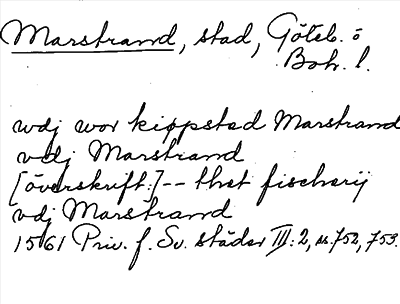 Marstrand, stad, Göteb. o
Boh. l.
wdj wor kiøpstad Marstrand
vdj Marstrand
[överskrift:] -- thet fischerij
vdj Marstrand
1561 Priv. f. Sv. städer III: 2, ss. 752, 753.